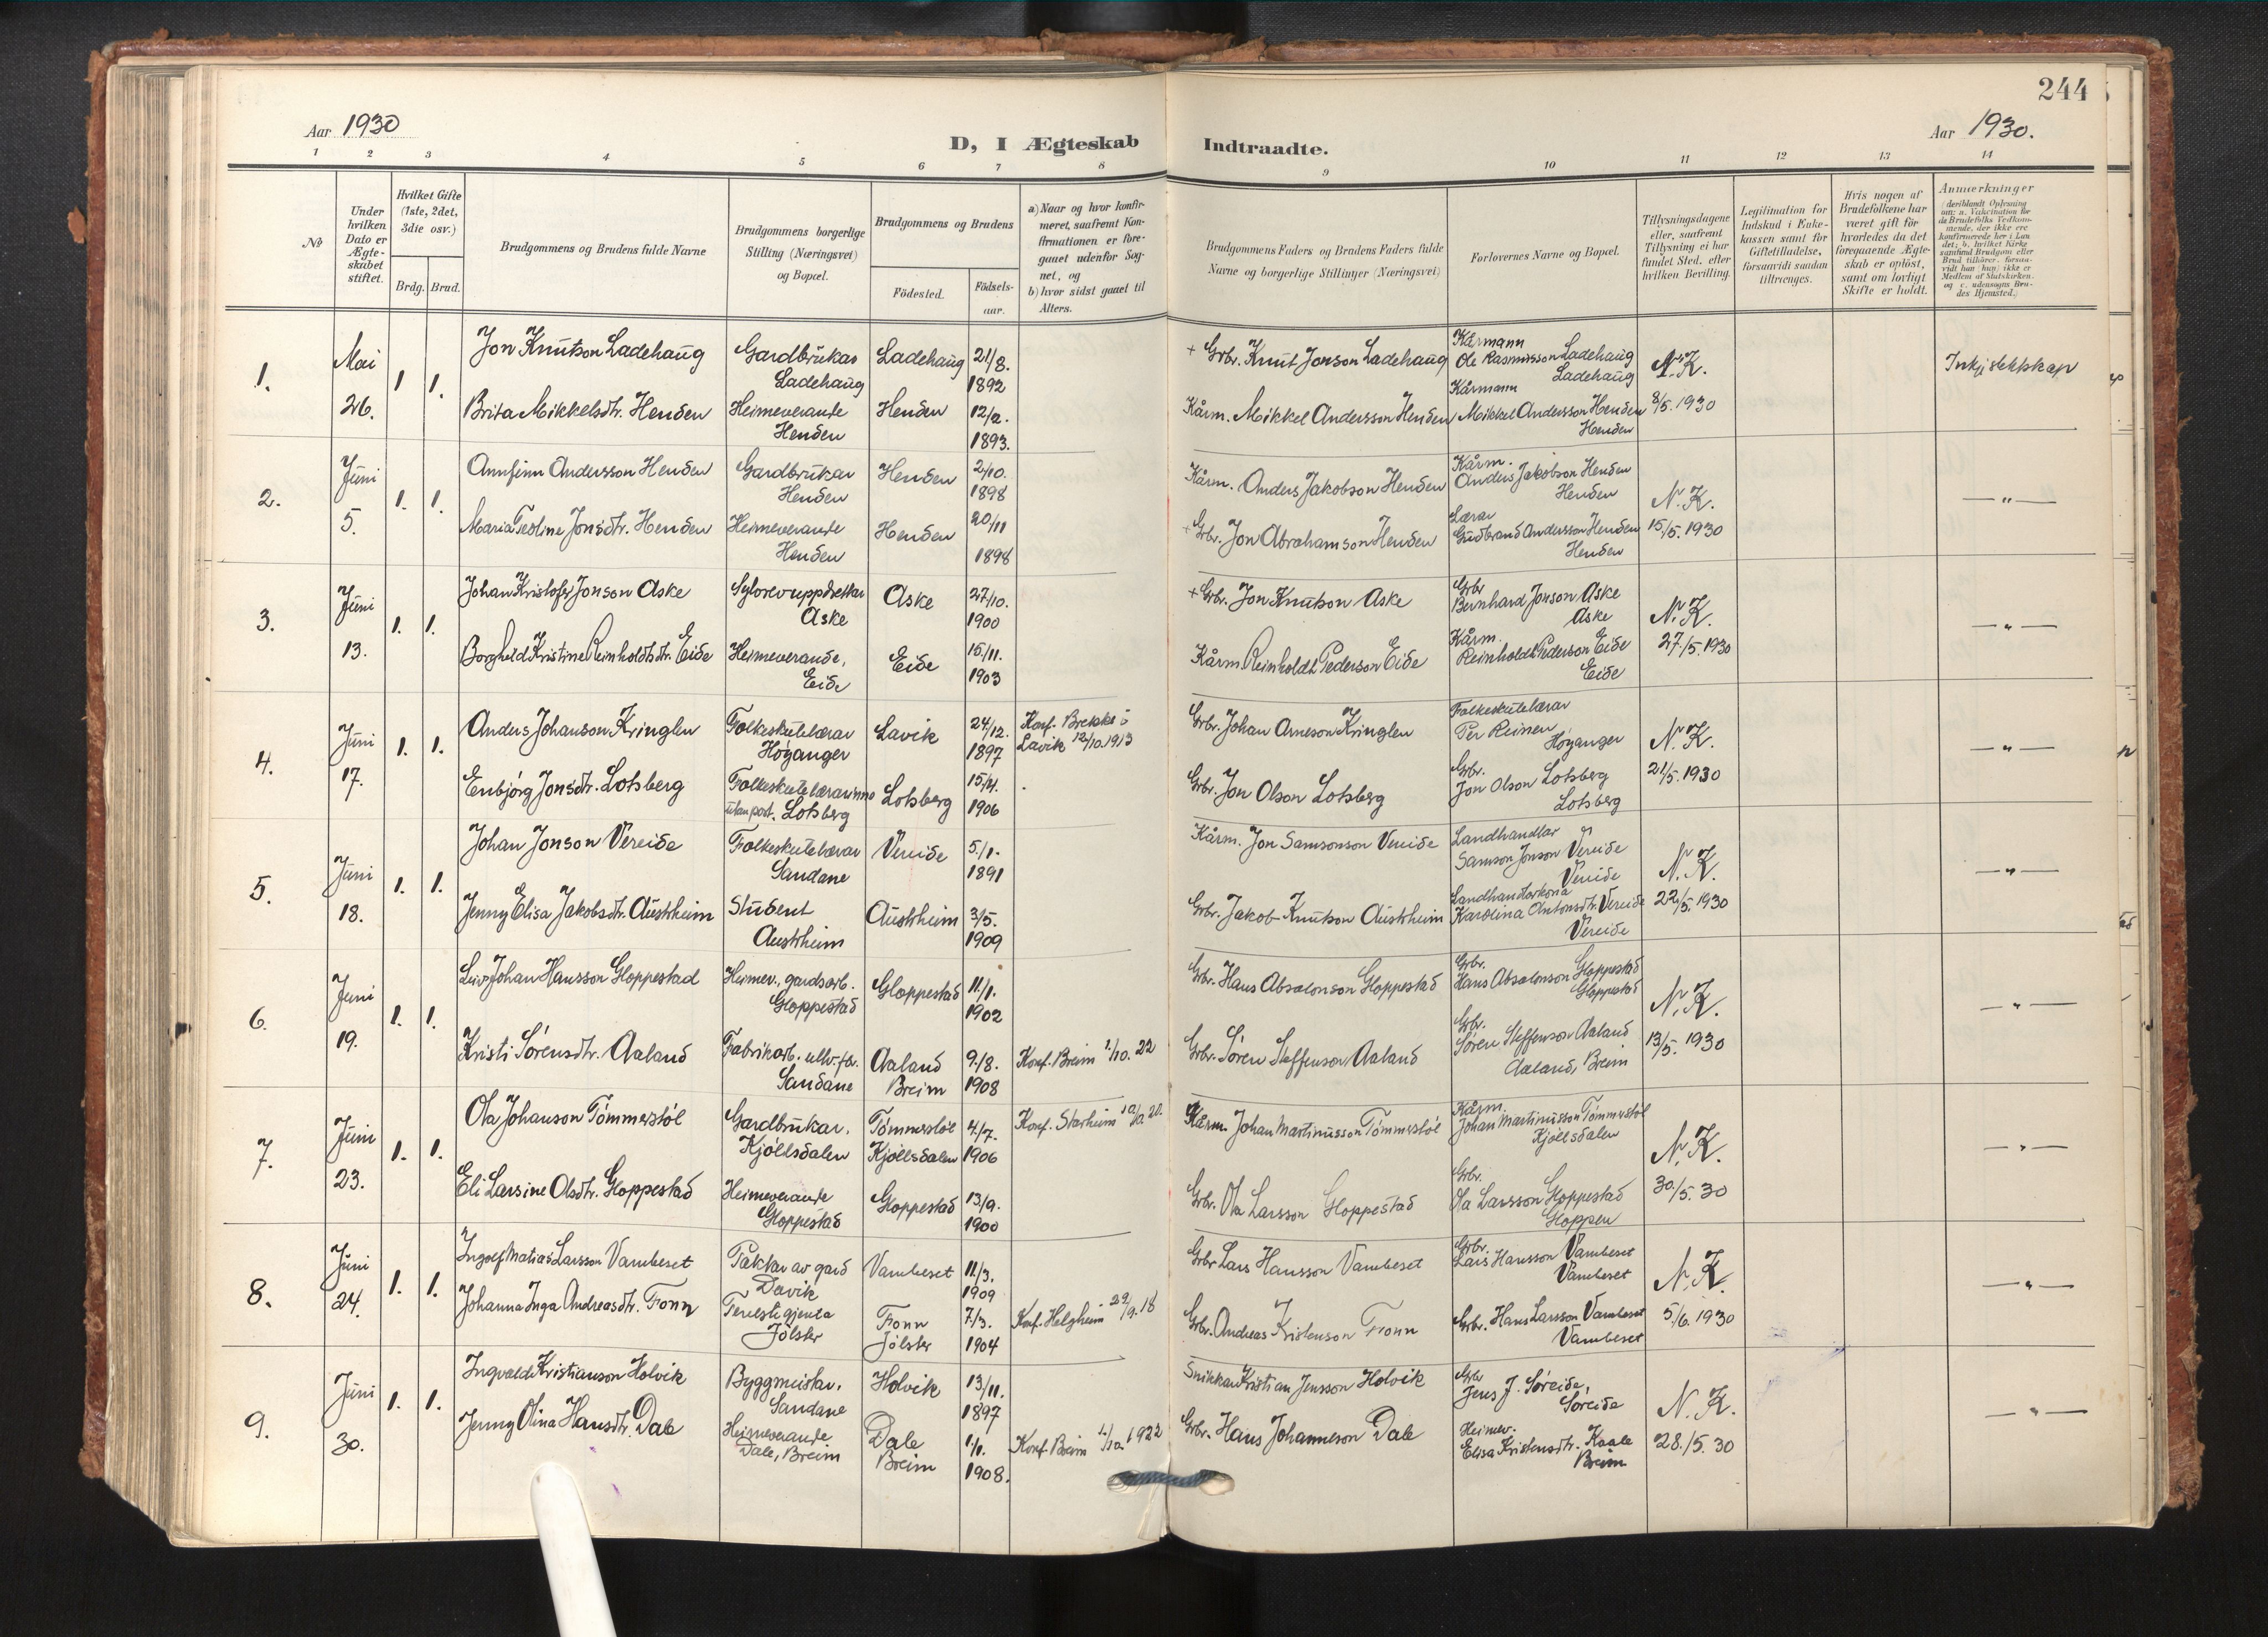 244
Aar 1930
D, I Ægteskab Indtraadte.
Aar 1930.
1 2 3 4 5 6 7 8 9 10 11 12 13 14
No
Under hvilken Dato er Ægteskabet stiftet.
Hvilket Gifte (1ste, 2det, 3die osv.)
Brdg. Brud.
Brudgommens og Brudens fulde Navne
Brudgommens borgerlige Stilling (Næringsvei) og Bopæl.
Brudgommens og Brudens
Födested.
Födselsaar.
a) Naar og hvor konfirmeret, saafremt Konfirmationen er foregaaet udenfor Sognet, og
b) hvor sidst gaaet til Alters.
Brudgommens Faders og Brudens Faders fulde Navne og borgerlige Stillinger (Næringsvei)
Forlovernes Navne og Bopæl.
Tillysningsdagene eller, saafremt Tillysning ei har fundet Sted, efter hvilken Bevilling.
Legitimation for Indskud i Enkekassen samt for Giftetilladelse, forsaavidt saadan tiltrænges.
Hvis nogen af Brudefolkene har været gift för hvorledes da det foregaaende Ægteskab er oplöst, samt om lovligt Skifte er holdt.
Anmerkninger
(deriblandt Oplysning om: a. Vakcination for de Brudefolks Vedkommende, der ikke ere konfirmerede her i Landet; b. hvilket Kirkesamfund Brudgom eller Brud tilhörer, forsaavidt han (hun) ikke er Medlem af Statskirken. og c. udensogns Brudes Hjemsted.)
1. Mai 26. 1 1.
Jon Knutson Ladehaug
Gardbrukar Ladehaug
Ladehaug
21/8. 1892
+ Grbr. Knut Jonson Ladehaug
Kårmann Ole Rasmusson Ladehaug Ladehaug
N.K.
8/5. 1930
Inkje slektskap
Brita Mikkelsdtr. Henden
Heimeverande Henden
Henden
12/2. 1893.
Kårm. Mikkel Andersson Henden
Kårmann Mikkel Andersson Henden Henden
2. Juni 5. 1. 1.
Annfinn Andersson Henden
Gardbrukar Henden
Henden
2/10. 1898
Kårm. Anders Jakobson Henden
Kårm. Anders Jakobson Henden Henden
N.K.
15/5. 1930
— " —
Maria Teoline Jonsdtr. Henden
Heimeverande Henden
Henden
20/11 1898
+ Grbr. Jon Abrahamson Henden
Lærar Gudbrand Andersson Henden Henden
3. Juni 13. 1. 1.
Johan Kristofer Jonson Aske
Sylvrevuppdrettar Aske
Aske
27/10. 1900
+ Grbr. Jon Knutson Aske
Grbr Bernhard Jonson Aske Aske
N.K.
27/5. 1930
— " —
Borghild Kristine Reinholdtsdtr. Eide
Heimeverande, Eide
Eide
15/11. 1903
Kårm. Reinholdt Pederson Eide
Kårm. Reinholdt Pederson Eide Eide
4. Juni 17. 1. 1.
Anders Johanson Kringlen
Folkeskulelærar Høyanger
Lavik
24/12. 1897
Konf. Brekke i Lavik 12/10. 1913
Grbr. Johan Arneson Kringlen
Folkeskulelærar Per Reinen Høyanger
N.K.
21/5. 1930
— " —
Enbjørg Jonsdtr. Lotsberg
Folkeskulelærarinne utan post. Lotsberg
Lotsberg
15/4. 1906
Grbr. Jon Olson Lotsberg
Grbr. Jon Olson Lotsberg Lotsberg
5. Juni 18. 1. 1.
Johan Jonson Vereide
Folkeskulelærar Sandane
Vereide
5/1. 1891
Kårm. Jon Samsonson Vereide
Landhandlar Samson Jonson Vereide Vereide
N.K.
22/5. 1930
— " —
Jenny Elisa Jakobsdtr. Austrheim
Student Austrheim
Austrheim
3/5. 1909
Grbr. Jakob Knutson Austrheim
Landhandlarkona Karolina Antonsdtr. Vereide Vereide
6. Juni 19. 1. 1.
Liv Johan Hansson Gloppestad
Heimev., gardsarb. Gloppestad
Gloppestad
11/1. 1902
Grbr. Hans Absalonson Gloppestad
Grbr. Hans Absalonson Gloppestad Gloppestad
N.K.
13/5. 1930
— " —
Kristi Sørensdtr. Aaland
Fabrikarb. ullv.fbr. Sandane
Aaland Breim
9/8. 1908
Konf. Breim 1/10. 22
Grbr. Søren Steffenson Aaland
Grbr. Søren Steffenson Aaland Aaland, Breim
7. Juni 23. 1. 1.
Ola Johanson Tømmerstøl
Gardbrukar. Kjøllsdalen
Tømmerstøl Kjøllsdalen
4/7. 1906
Konf. Starheim
Kårm. Johan Martinusson Tømmerstøl
Kårm. Johan Martinusson Tømmerstøl Kjøllsdalen
N.K.
30/5. 30
— " —
Eli Larsine Olsdtr. Gloppestad
Heimeverande Gloppestad
Gloppestad
13/9. 1900
Grbr. Ola Larsson Gloppestad
Grbr. Ola Larsson Gloppestad Gloppen
8. Juni 24. 1. 1.
Ingolf Matias Larsson Vambeset
Paktar av gard Davik
Vambeset
11/3. 1909
Grbr Lars Hansson Vambeset
Grbr. Lars Hansson Vambeset Vambeset
N.K.
5/6. 1930
— " —
Johanna Inga Andreasdtr. Fonn
Tenestgjenta Jølster
Fonn Jølster
7/3. 1904
Konf. Helgheim 29/9. 18
Grbr. Andreas Kristenson Fonn
Grbr. Hans Larsson Vambeset Vambeset
9. Juni 30. 1. 1.
Ingvald Kristianson Holvik
Byggmeistar. Sandane
Holvik
13/11. 1897
Snikkar Kristian Jensson Holvik
Grbr Jens J. Søreide, Søreide
N.K.
28./5. 30
— " —
Jenny Olina Hansdtr. Dale
Heimeverande Dale, Breim
Dale Breim
1/1. 1908.
Konf. Breim 1/10. 1922
Grbr. Hans Johanneson Dale
Heimev. Elisa Kristensdtr. Kaale Breim